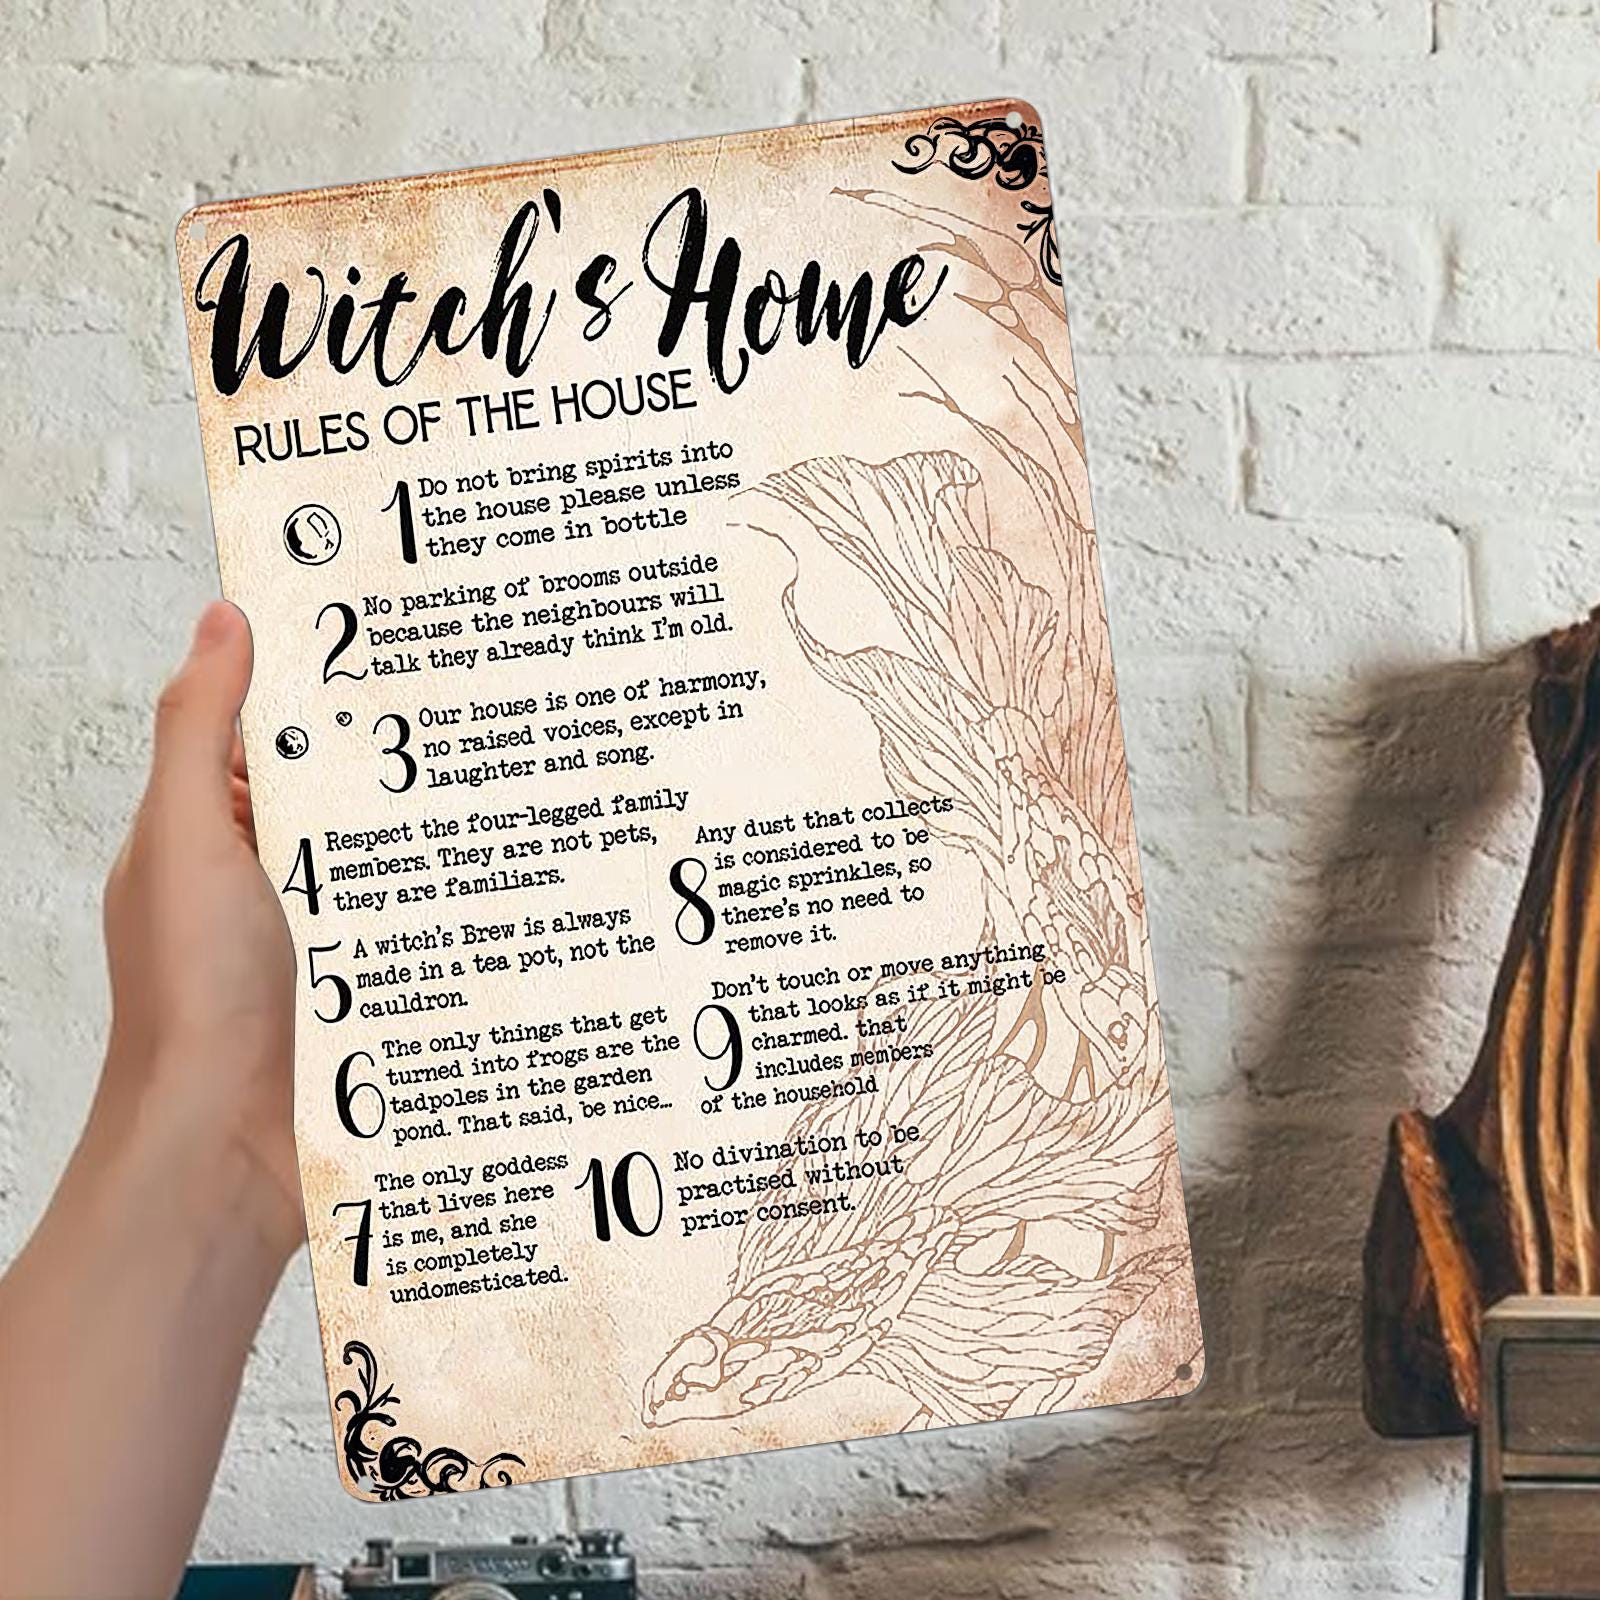 Witch's Home
RULES OF THE HOUSE
1 Do not bring spirits into
the house please unless
they come in bottle
2 No parking of brooms outside
because the neighbours will
talk they already think I'm old.
3 Our house is one of harmony,
no raised voices, except in
laughter and song.
4 Respect the four-legged family
members. They are not pets,
they are familiars.
5 A witch's Brew is always
made in a tea pot, not the
cauldron.
6 The only things that get
turned into frogs are the
tadpoles in the garden
pond. That said, be nice...
7 The only goddess
that lives here
is me, and she
is completely
undomesticated.
8 Any dust that collects
is considered to be
magic sprinkles, so
there's no need to
remove it.
9 Don't touch or move anything
that looks as if it might be
charmed. that
includes members
of the household
10 No divination to be
practised without
prior consent.